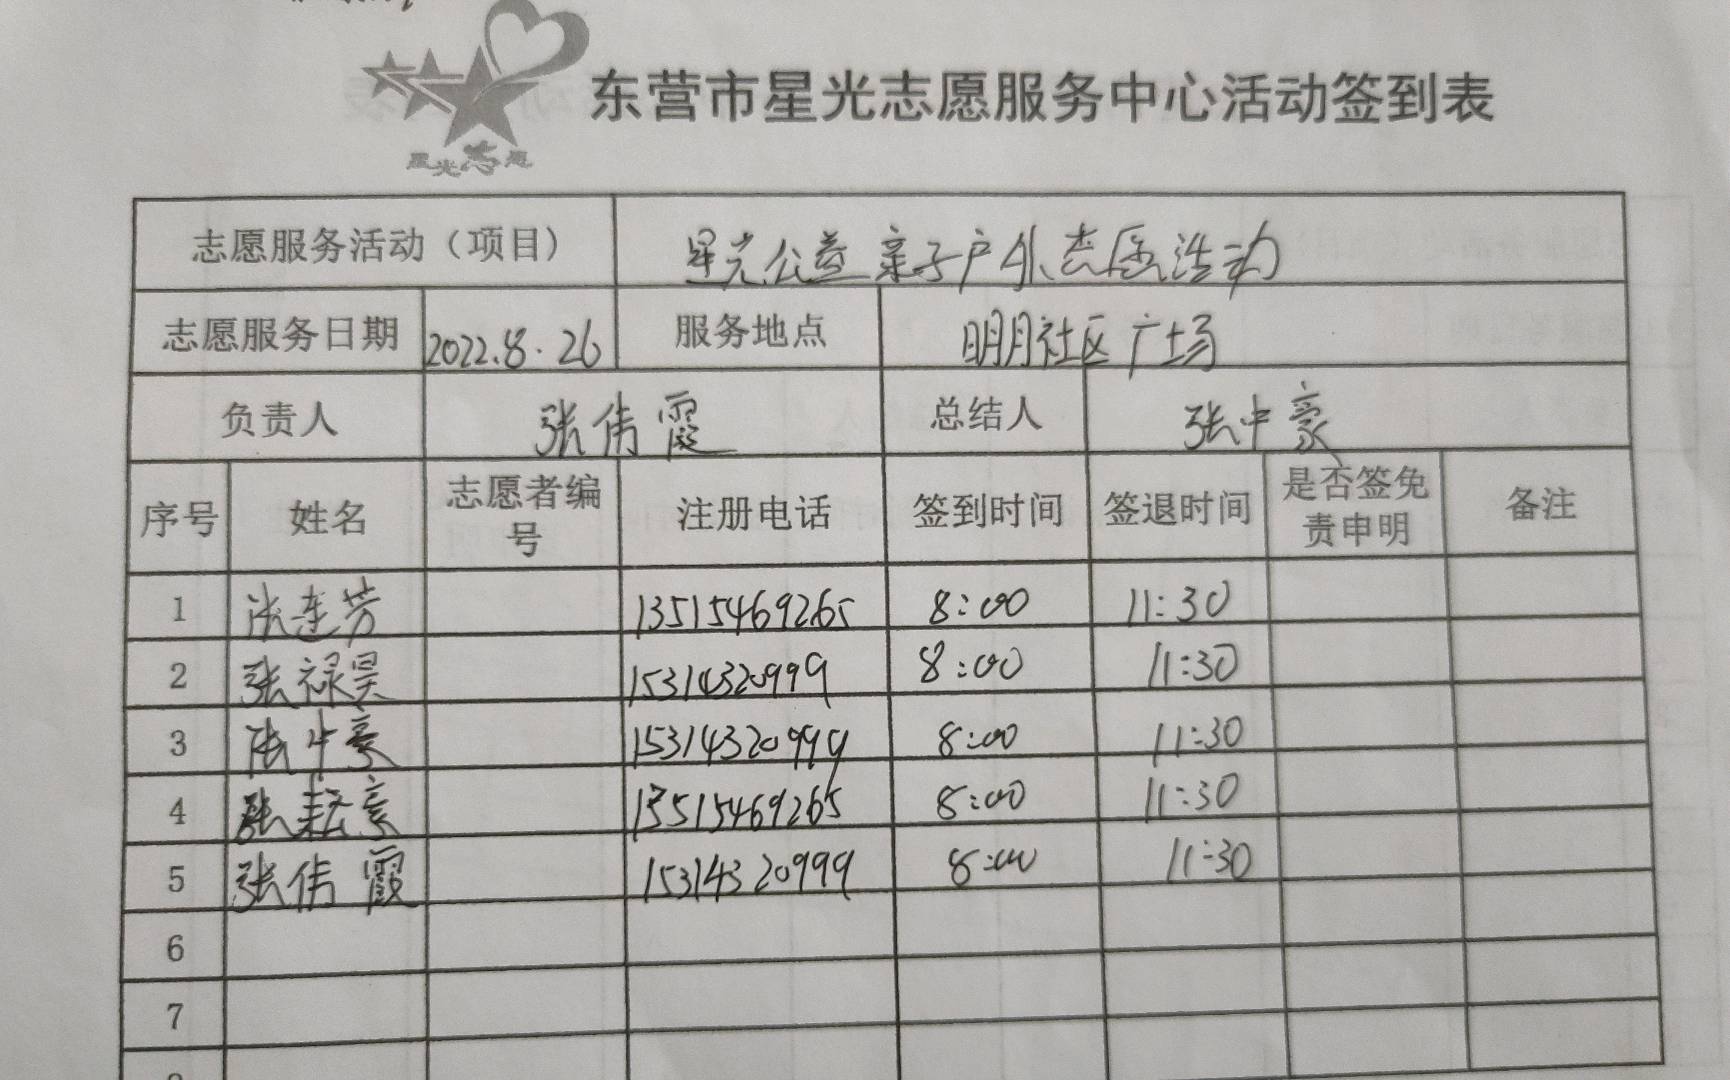 星光志愿
东营市星光志愿服务中心活动签到表
志愿服务活动（项目） 星光公益亲子户外志愿活动
志愿服务日期 2022.8.26 服务地点 明月社区广场
负责人 张伟霞 总结人 张中豪
序号 姓名 志愿者编号 注册电话 签到时间 签退时间 是否签免责申明 备注
1 张连芳 13515469265 8:00 11:30
2 张禄昊 15314320999 8:00 11:30
3 张中豪 15314320999 8:00 11:30
4 张耘豪 13515469265 8:00 11:30
5 张伟霞 15314320999 8:00 11:30
6
7